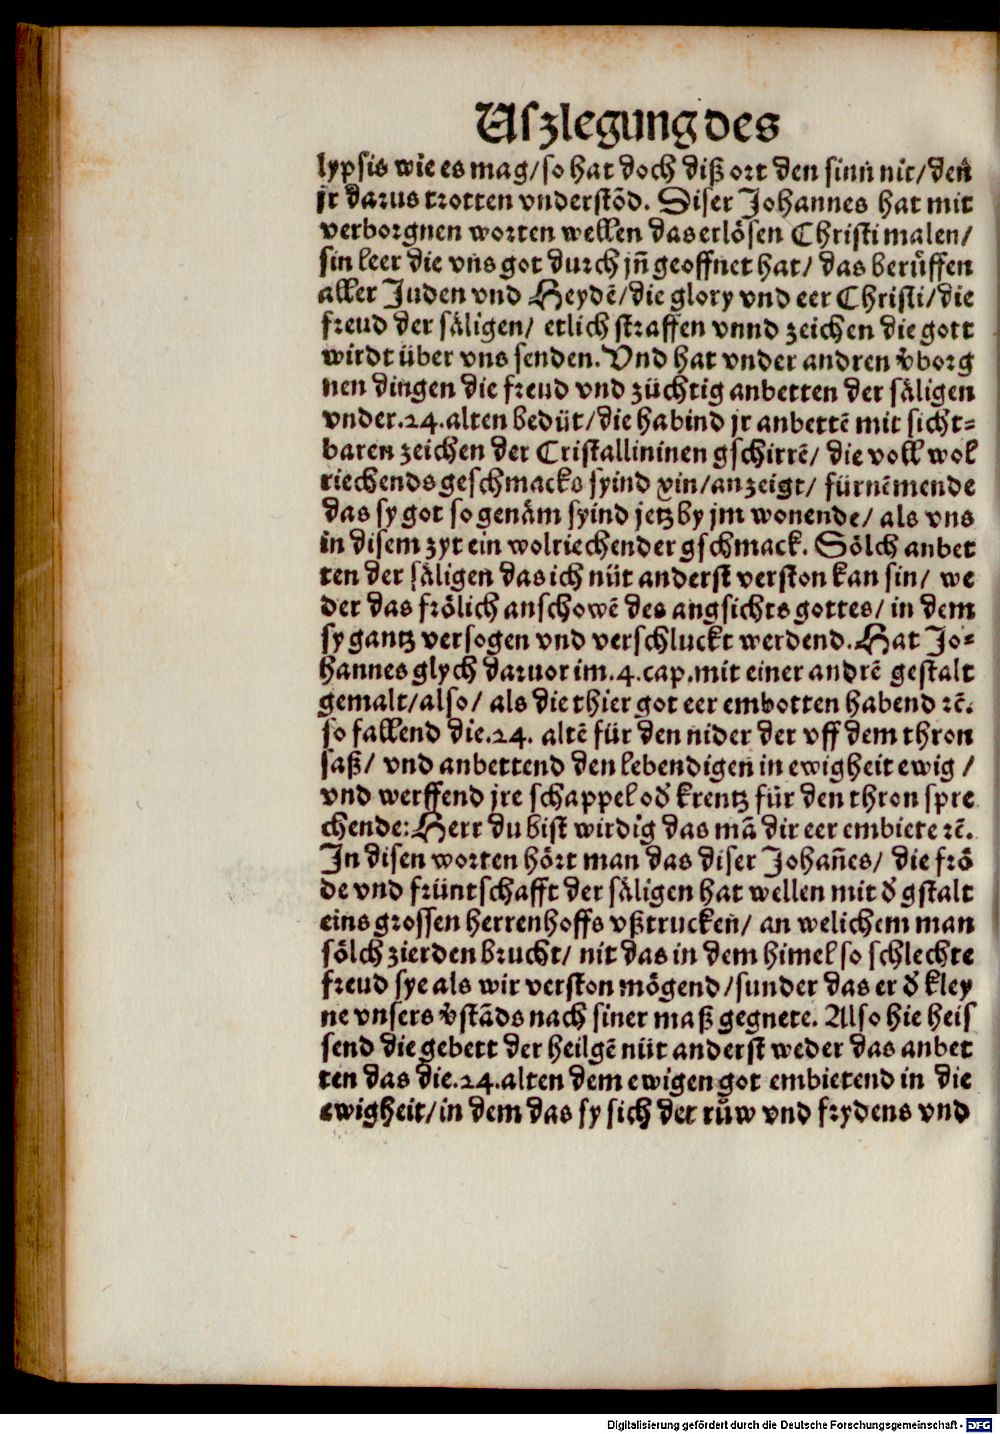 Uſzlegung des
lypsis wie es mag/ so hat doch diß ort den sinn nit/ den
jr darus trotten vnderstōd. Diser Johannes hat mit
verborgnen worten wellen das erlösen Christi malen/
sin leer die vns got durch jñ geoffnet hat/ das berůffen
aller Juden vnd Heydē/ die glory vnd eer Christi/ die
freud der säligen/ etlich straffen vnnd zeichen die gott
wirdt über vns senden. Vnd hat vnder andren v̊borg
nen dingen die freud vnd züchtig anbetten der säligen
vnder.24.alten bedüt/ die habind jr anbettē mit sicht⸗
baren zeichen der Cristallininen gschirrē/ die voll wol
riechends geschmacks syind xin/ anzeigt/ fürnēmende
das sy got so genäm syind jetz by jm wonende/ als vns
in disem zyt ein wolriechender gschmack. Sölch anbet
ten der säligen das ich nüt anderst verston kan sin/ we
der das frölich anschowē des angsichts gottes/ in dem
sy gantz versogen vnd verschluckt werdend. Hat Jo⸗
hannes glych daruor im.4.cap.mit einer andrē gestalt
gemalt/ also/ als die thier got eer embotten habend ꝛc̄.
so fallend die.24. altē für den nider der vff dem thron
saß/ vnd anbettend den lebendigen in ewigheit ewig /
vnd werffend jre schappel od̓ krentz für den thron spre
chende: Herr du bist wirdig das mā dir eer embiete ꝛc̄.
In disen worten hört man das diser Johañes/ die frö
de vnd früntschafft der säligen hat wellen mit d̓ gstalt
eins grossen herrenhoffs vßtrucken/ an welichem man
sölch zierden brucht/ nit das in dem himel so schlechte
freud sye als wir verston mögend/ sunder das er d̓ kley
ne vnsers v̊stāds nach siner maß gegnete. Also hie heis
send die gebett der heilgē nüt anderst weder das anbet
ten das die.24.alten dem ewigen got embietend in die
ewigheit/ in dem das sy sich der růw vnd frydens vnd
Digitalisierung gefördert durch die Deutsche Forschungsgemeinschaft - DFG